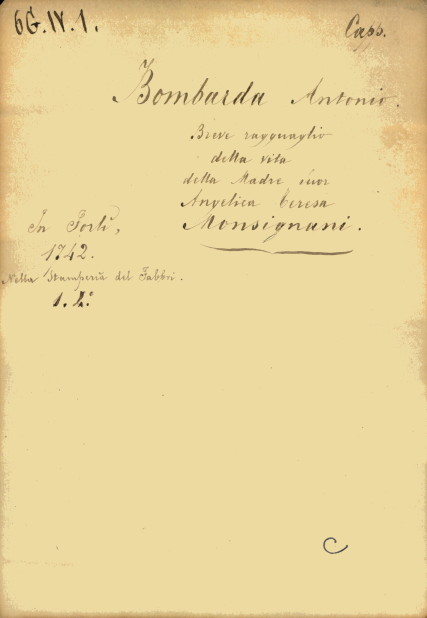 6G.IV.1.
Capp.
Bombarda Antonio.
Breve ragguaglio
della vita
della Madre Suor
Angelica Teresa
Monsignani.
In Forlì,
1742.
Nella Stamperia del Fabbri.
1. 4.°
C